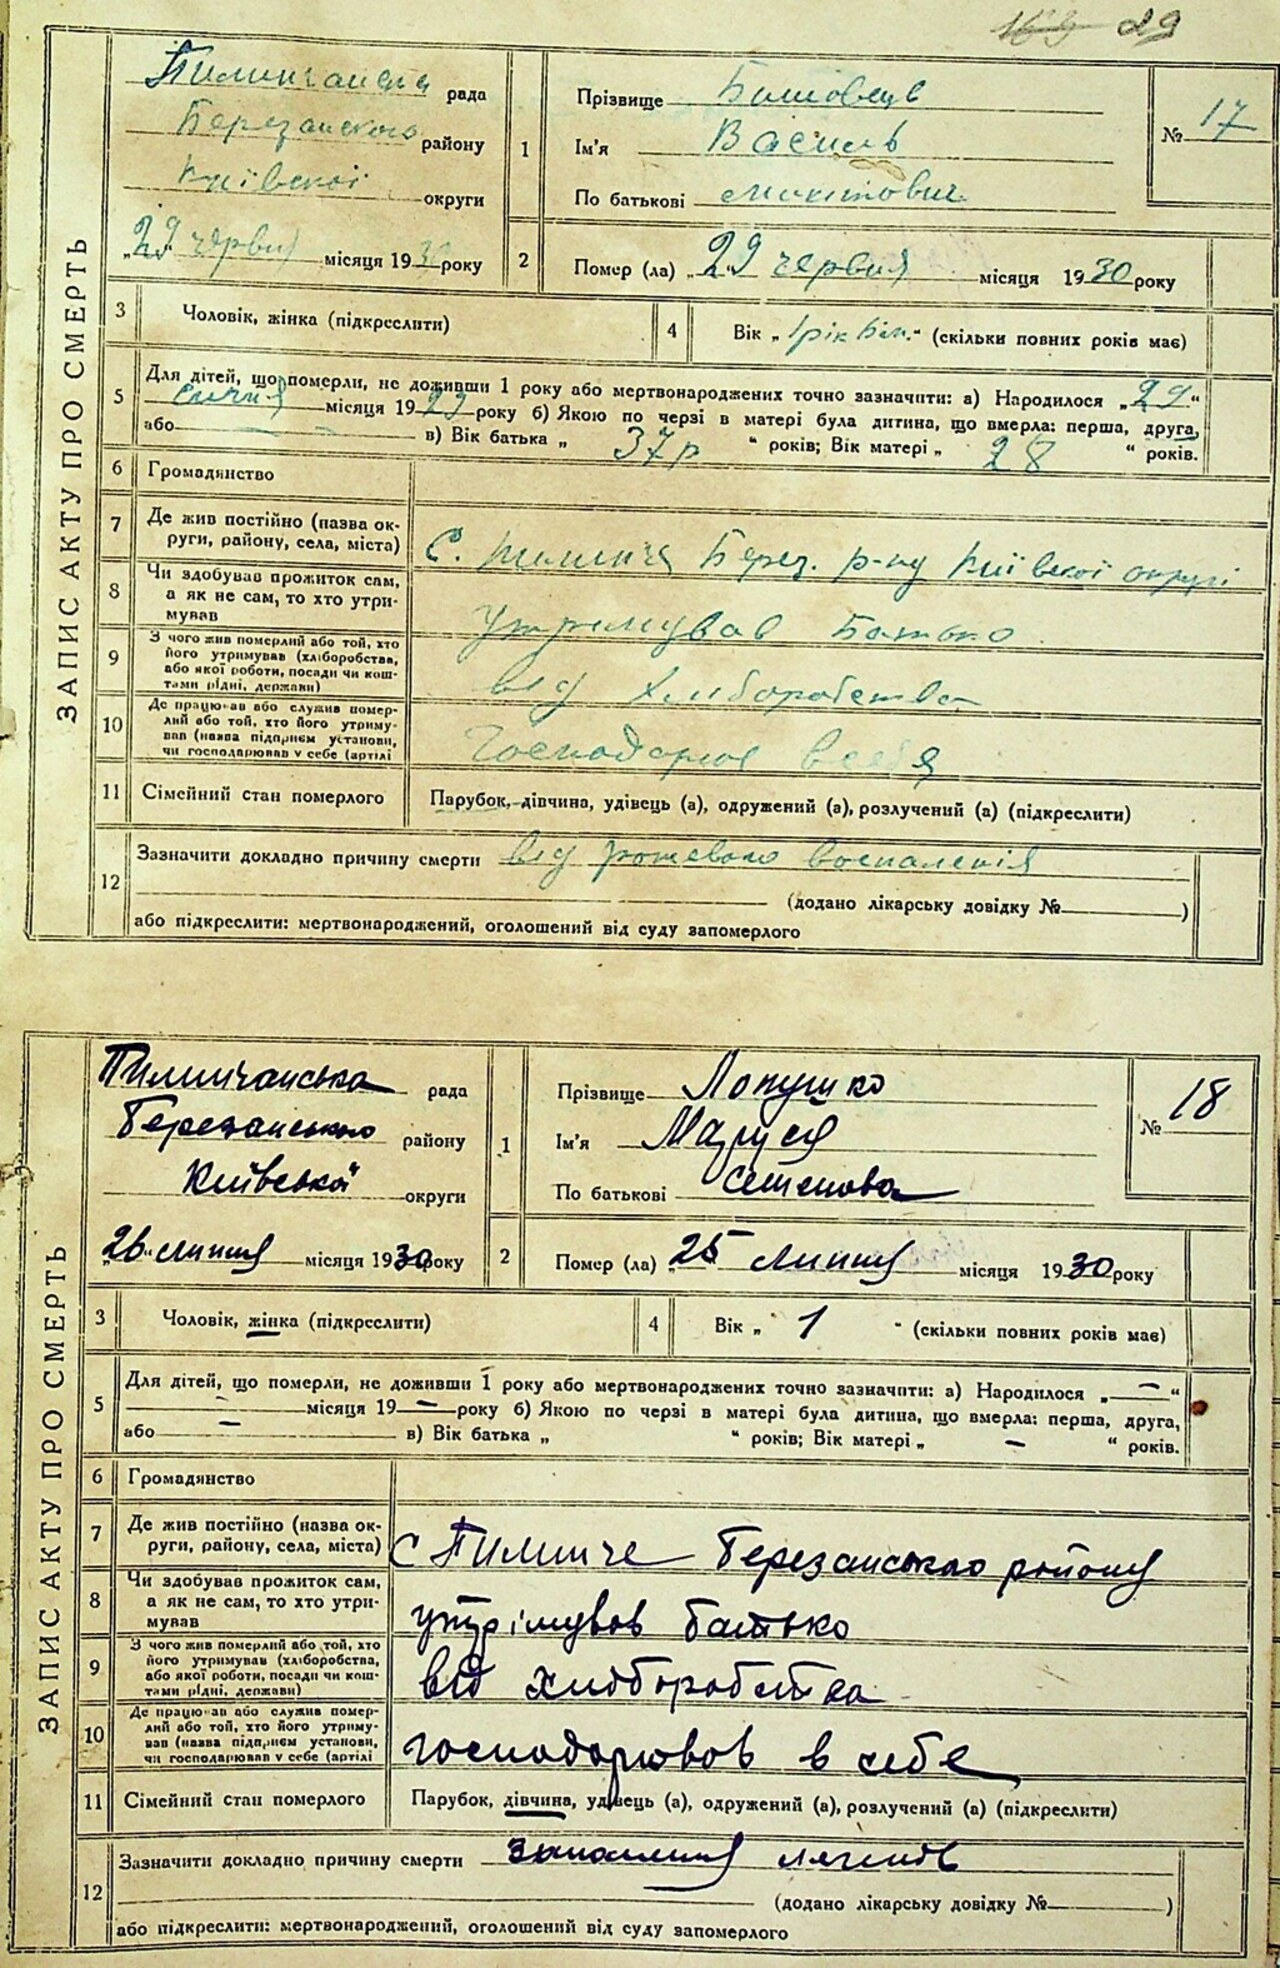 29
ЗАПИС АКТУ ПРО СМЕРТЬ
рада
Березанского району
Київскої округи
„29“ червня місяця 1930 року
1
Прізвище
Ім'я Василь
По батькові
№ 17
2
Помер (ла) „29 червня місяця 1930 року
3
Чоловік, жінка (підкреслити)
4
Вік „1 рік 5 м.“ (скільки повних років має)
5
Для дітей, що померли, не доживши 1 року або мертвонароджених точно зазначити: а) Народилося „29“
січня місяця 1929 року б) Якою по черзі в матері була дитина, що вмерла: перша, друга,
або в) Вік батька „ 37 р “ років; Вік матері „ 28 “ років.
6
Громадянство
7
Де жив постійно (назва ок-
руги, району, села, міста)
С. Пилипча Берез. р-ну Київскої округі
8
Чи здобував прожиток сам,
а як не сам, то хто утри-
мував
утримував батько
9
З чого жив померлий або той, хто
його утримував (хліборобства,
або якої роботи, посади чи кош-
тами рідні, держави)
від хліборобства
10
Де працював або служив помер-
лий або той, хто його утриму-
вав (назва підприєм установи,
чи господарював у себе (артілі
в себя
11
Сімейний стан померлого
Парубок, дівчина, удівець (а), одружений (а), розлучений (а) (підкреслити)
12
Зазначити докладно причину смерти від рожевого воспаленія
(додано лікарську довідку № )
або підкреслити: мертвонароджений, оголошений від суду запомерлого
ЗАПИС АКТУ ПРО СМЕРТЬ
Пилипчанська рада
Березанського району
Київської округи
„26“ липня місяця 1930 року
1
Прізвище Лопушко
Ім'я Маруся
По батькові Семенова
№ 18
2
Помер (ла) „25 липня місяця 1930 року
3
Чоловік, жінка (підкреслити)
4
Вік „ 1 “ (скільки повних років має)
5
Для дітей, що померли, не доживши 1 року або мертвонароджених точно зазначити: а) Народилося „ — “
— місяця 19 — року б) Якою по черзі в матері була дитина, що вмерла: перша, друга,
або — в) Вік батька „ “ років; Вік матері „ — “ років.
6
Громадянство
7
Де жив постійно (назва ок-
руги, району, села, міста)
с Пилипче Березанського району
8
Чи здобував прожиток сам,
а як не сам, то хто утри-
мував
утрімував батько
9
З чого жив померлий або той, хто
його утримував (хліборобства,
або якої роботи, посади чи кош-
тами рідні, держави)
від хлібборобства
10
Де працював або служив помер-
лий або той, хто його утриму-
вав (назва підприєм установи,
чи господарював у себе (артілі
господорював в себе
11
Сімейний стан померлого
Парубок, дівчина, удівець (а), одружений (а), розлучений (а) (підкреслити)
12
Зазначити докладно причину смерти запалення лягенів
(додано лікарську довідку № )
або підкреслити: мертвонароджений, оголошений від суду запомерлого